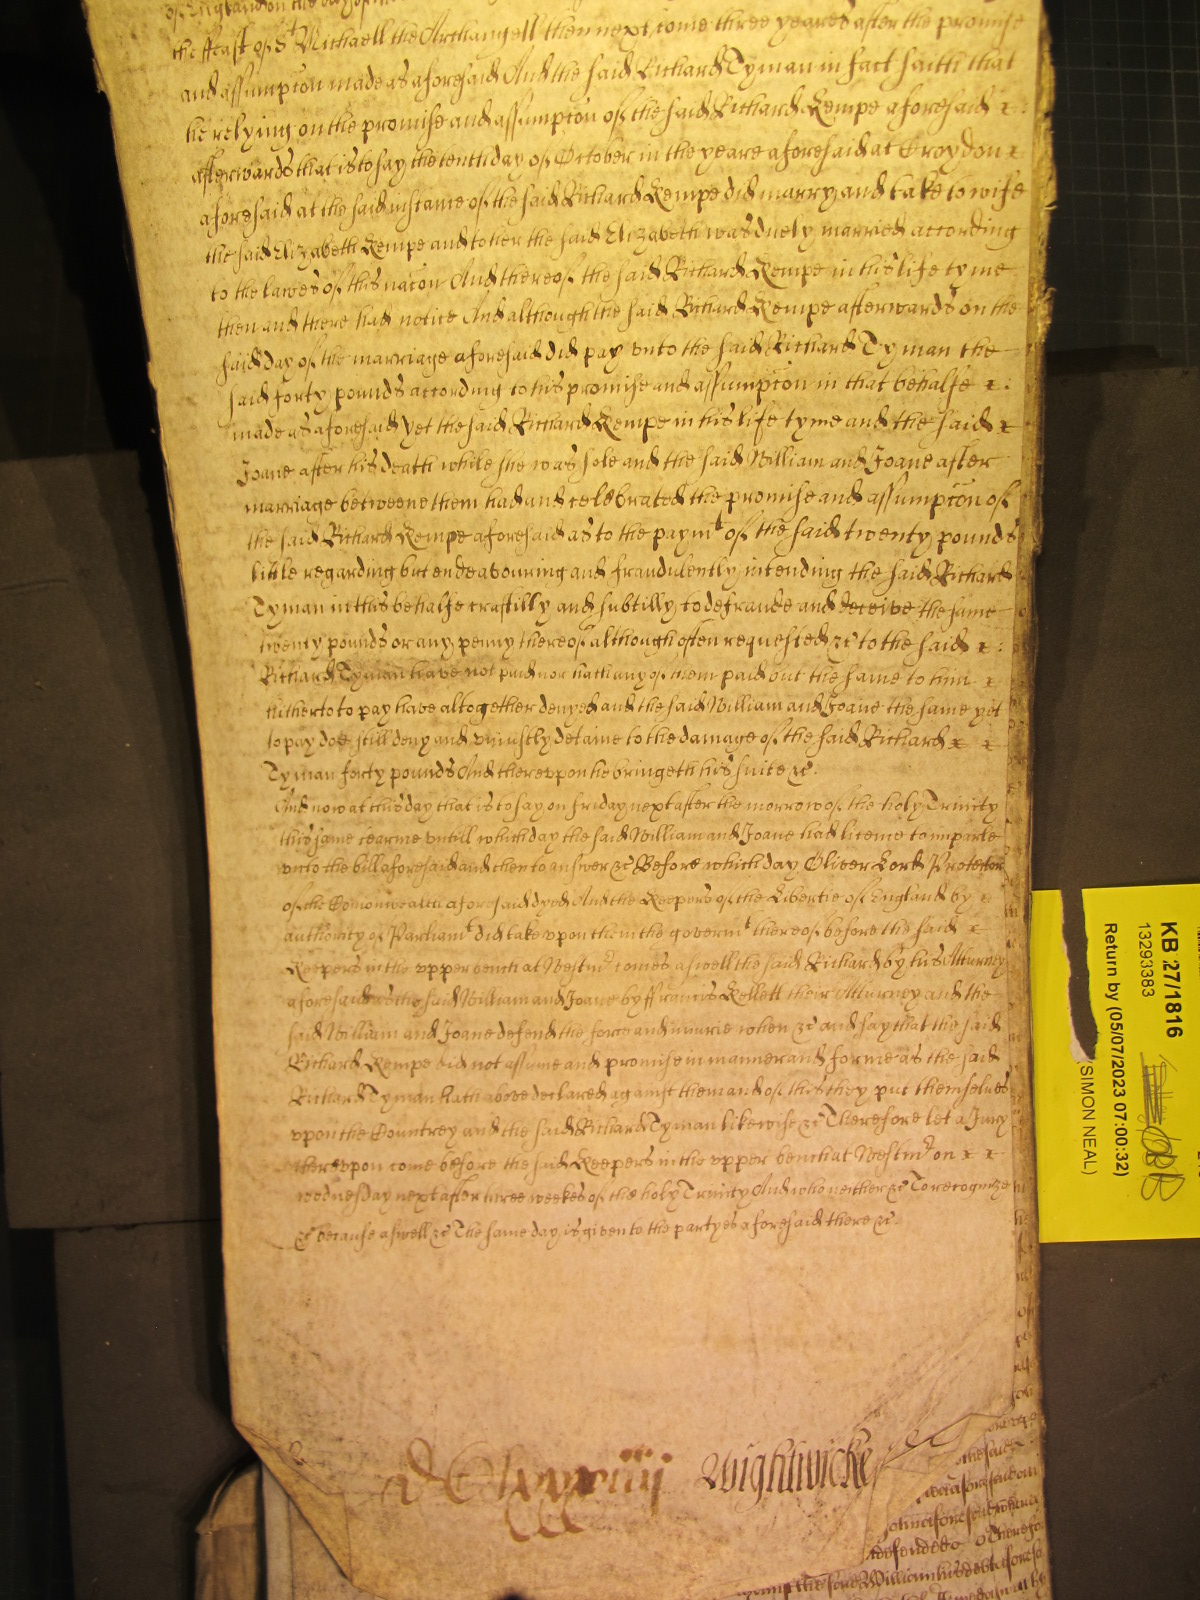 of England on the day of
the ffeast of St Michaell the Archangell then next come three yeares after the promise
and assumpcon made as aforesaid And the said Richard Tyman in fact saith that
he relying on the promise and assumpcon of the said Richard Kempe aforesaid
afterwards that is to say the tenth day of October in the yeare aforesaid at Croydon
aforesaid at the said instance of the said Richard Kempe did marry and take to wife
the said Elizabeth Kempe and to her the said Elizabeth was duely married according
to the lawes of this nacon And thereof the said Richard Kempe in his life tyme
then and there had notice And although the said Richard Kempe afterwards on the
said day of the marriage aforesaid did pay vnto the said Richard Tyman the
said forty pounds according to his promise and assumpcon in that behalfe
made as aforesaid Yet the said Richard Kempe in his life tyme and the said
Joane after his death while she was sole and the said William and Joane after
marriage betweene them had and celebrated the promise and assumpcon of
the said Richard Kempe aforesaid as to the paymt of the said twenty pounds
little regarding but endeavouring and fraudulently intending the said Richard
Tyman in this behalfe craftilly and subtilly to defraude and deceive the same
twenty pounds or any penny thereof although often requested &c to the said
Richard Tyman have not paid nor hath any of them paid but the same to him
hitherto to pay have altogether denyed and the said William and Joane the same yet
to pay doe still deny and vniustly detaine to the damage of the said Richard
Tyman forty pounds And therevpon he bringeth his suite &c.
And now at this day that is to say on Friday next after the morrow of the holy Trinity
this same tearme vntill which day the said William and Joane had licence to imparle
vnto the bill aforesaid and then to answer &c Before which day Oliver Lord Protector
of the Comonwealth aforesaid dyed And the Keepers of the Libertie of England by
authority of Parliamt did take vpon them the governmt thereof before the said
Keepers in the vpper bench at Westmr comes aswell the said Richard by his Atturney
aforesaid as the said William and Joane by ffrancis Kellett their Atturney and the
said William and Joane defend the force and iniurie when &c and say that the said
Richard Kempe did not assume and promise in manner and forme as the said
Richard Tyman hath above declared against them and of this they put themselves
vpon the Countrey and the said Richard Tyman likewise &c Therefore let a Jury
therevpon come before the said Keepers in the vpper bench at Westmr on
wednesday next after three weekes of the holy Trinity And who neither &c To recognize
&c because aswell &c The same day is given to the partyes aforesaid there &c.
Wightwicke
KB 27/1816
13293383
Return by (05/07/2023 07:00:32)
(SIMON NEAL)